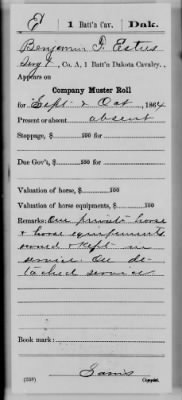 E | 1 Batt'n Cav. | Dak.
Benjamin F. Estes
Serg't, Co. A, 1 Batt'n Dakota Cavalry.
Appears on
Company Muster Roll
for Sept & Oct, 1864
Present or absent absent
Stoppage, $ 100 for
Due Gov't, $ 100 for
Valuation of horse, $ 100
Valuation of horse equipments, $ 100
Remarks: One private horse
& horse equipements
owned & kept in
service. On de-
tached service
Book mark:
(358)
Copyist.